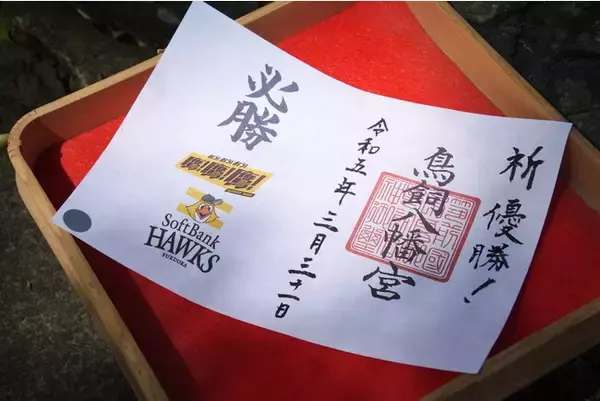 祈優勝！
鳥飼八幡宮
令和五年三月三十一日
必勝
鷹！鷹！鷹！
SoftBank
HAWKS
FUKUOKA